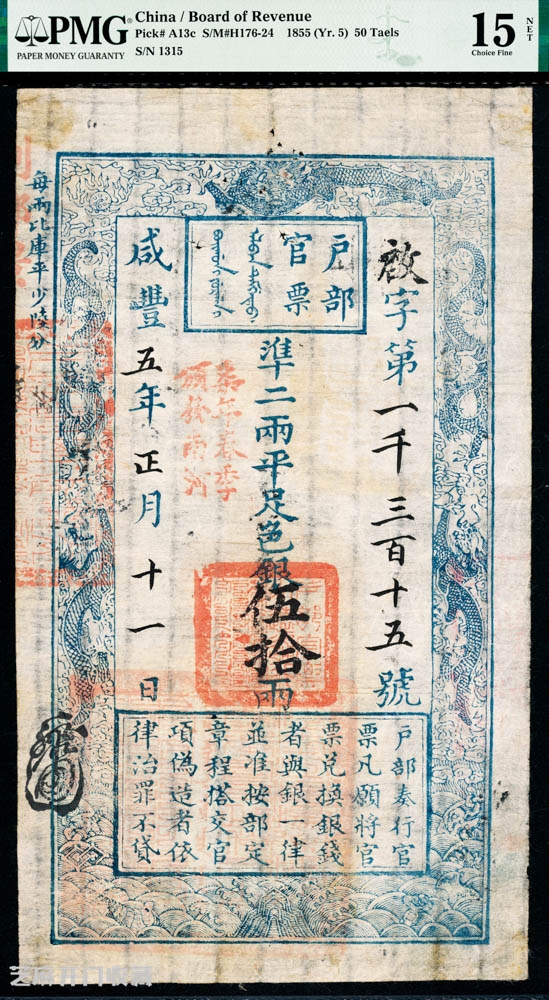 PMG
PAPER MONEY GUARANTY
China / Board of Revenue
Pick# A13c S/M#H176-24 1855 (Yr. 5) 50 Taels
S/N 1315
15
NET
Choice Fine
戶部
官票
啟字第一千三百十五號
準二兩平足色銀伍拾兩
咸豐五年正月十一日
每兩比庫平少陸分
戶部奏行官
票凡願將官
票兌換銀錢
者與銀一律
並准按部定
章程搭交官
項偽造者依
律治罪不貸
芝麻开门收藏